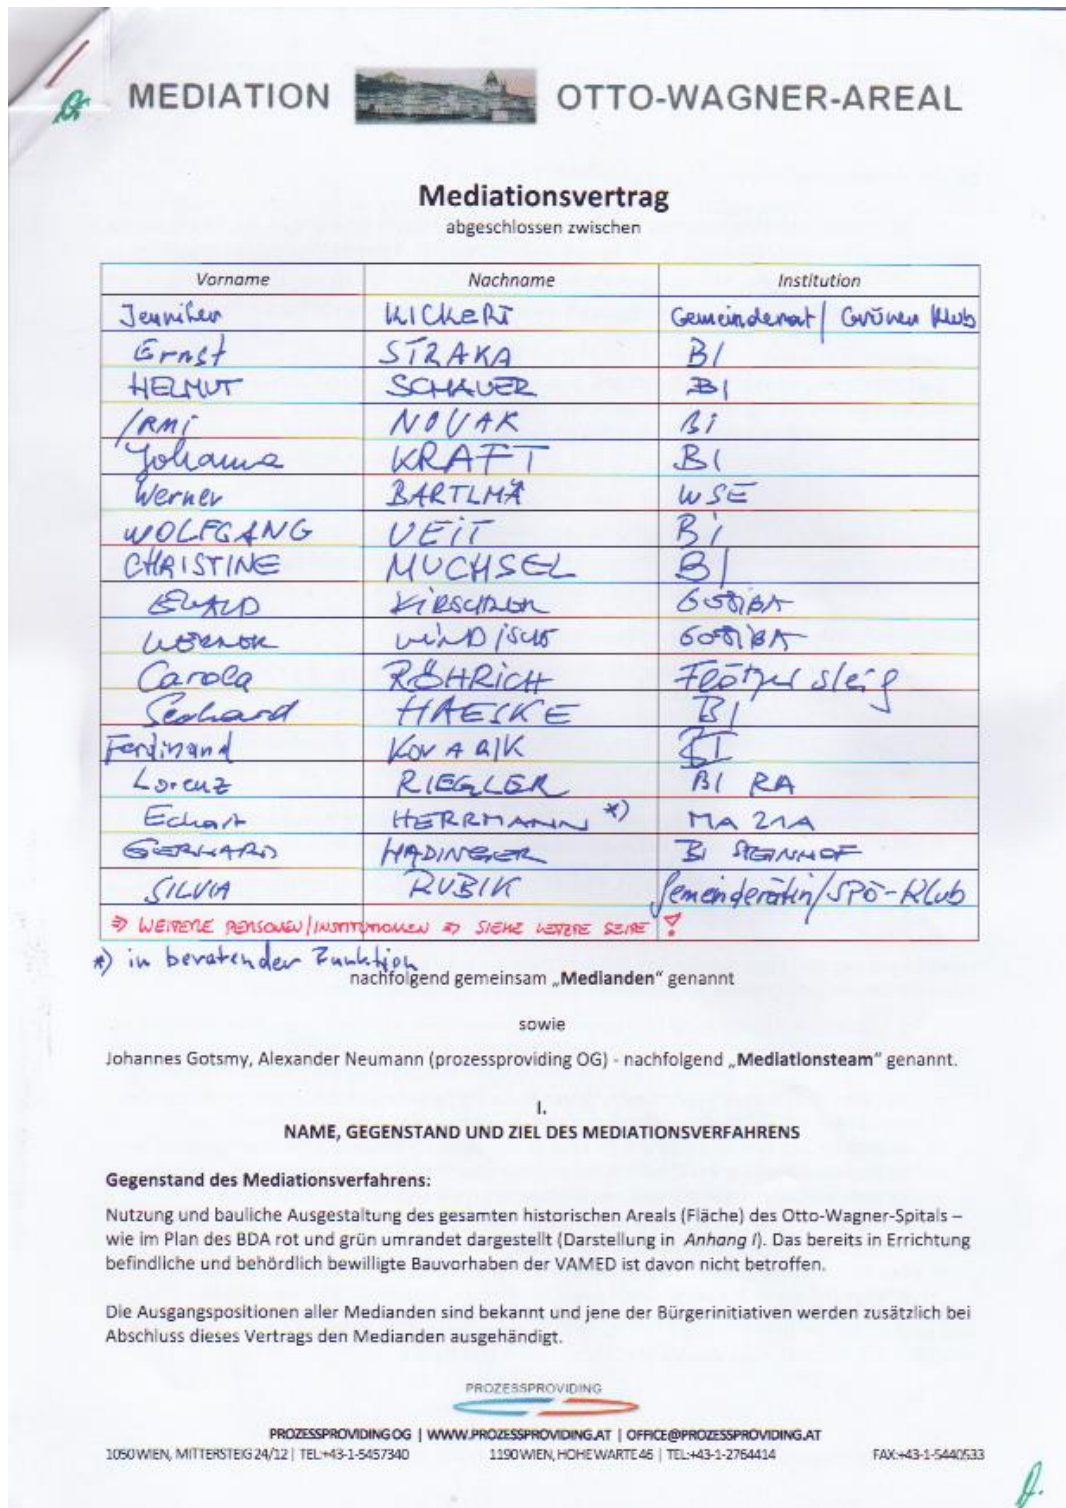 MEDIATION OTTO-WAGNER-AREAL
Mediationsvertrag
abgeschlossen zwischen
Vorname Nachname Institution
Jennifer KICKERT Gemeinderat / Grünen Klub
Ernst STRAKA BI
HELMUT SCHAUER BI
IRMi NOVAK Bi
Johanna KRAFT BI
Werner BARTLMÄ WSE
WOLFGANG VEiT Bi
CHRISTINE MUCHSEL BI
EWALD KIRSCHNER GESIBA
WERNER WINDISCH GESIBA
Carola RÖHRICH Flötzersteig
HAESKE BI
Ferdinand KOVARIK BI
Lorenz RIEGLER BI RA
Eckart HERRMANN *) MA 21A
GERHARD HADINGER BI STEINHOF
SILVIA RUBIK Gemeinderätin/SPÖ-Klub
⇒ WEITERE PERSONEN/INSTITUTIONEN ⇒ SIEHE LETZTE SEITE !
*) in beratender Funktion
nachfolgend gemeinsam „Medianden“ genannt
sowie
Johannes Gotsmy, Alexander Neumann (prozessproviding OG) - nachfolgend „Mediationsteam“ genannt.
I.
NAME, GEGENSTAND UND ZIEL DES MEDIATIONSVERFAHRENS
Gegenstand des Mediationsverfahrens:
Nutzung und bauliche Ausgestaltung des gesamten historischen Areals (Fläche) des Otto-Wagner-Spitals –
wie im Plan des BDA rot und grün umrandet dargestellt (Darstellung in Anhang I). Das bereits in Errichtung
befindliche und behördlich bewilligte Bauvorhaben der VAMED ist davon nicht betroffen.
Die Ausgangspositionen aller Medianden sind bekannt und jene der Bürgerinitiativen werden zusätzlich bei
Abschluss dieses Vertrags den Medianden ausgehändigt.
PROZESSPROVIDING
PROZESSPROVIDING OG | WWW.PROZESSPROVIDING.AT | OFFICE@PROZESSPROVIDING.AT
1050 WIEN, MITTERSTEIG 24/12 | TEL:+43-1-5457340 1190 WIEN, HOHE WARTE 46 | TEL:+43-1-2764414 FAX:+43-1-5440533